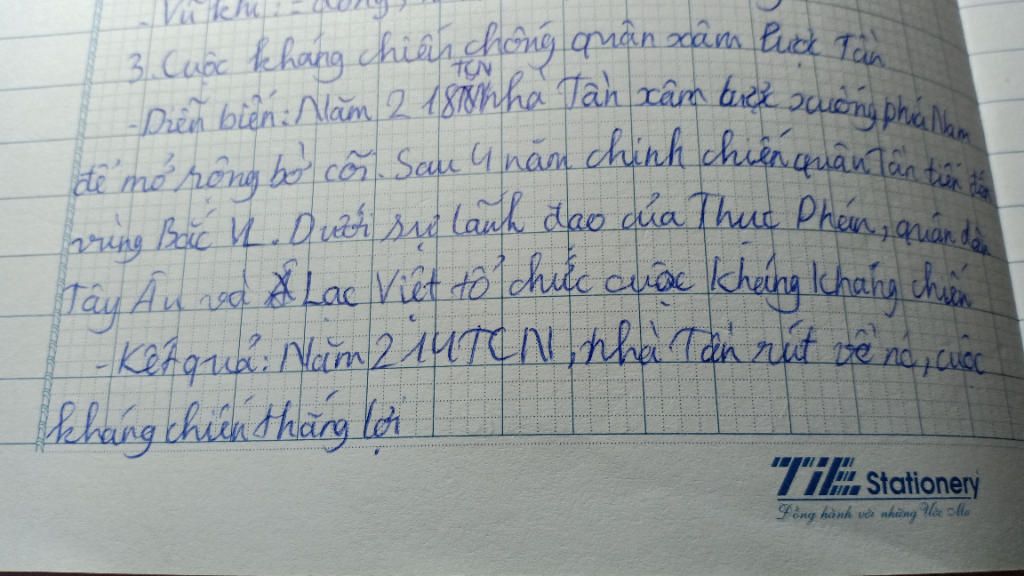 - Vũ khí: = đồng,
3. Cuộc kháng chiến chống quân xâm lược Tần
- Diễn biến: Năm 218 TCN nhà Tần xâm lược xuống phía Nam
để mở rộng bờ cõi. Sau 4 năm chinh chiến quân Tần tiến đến
vùng Bắc VN. Dưới sự lãnh đạo của Thục Phán, quân dân
Tây Âu và Lạc Việt tổ chức cuộc kháng kháng chiến
- Kết quả: Năm 214 TCN, nhà Tần rút về nc, cuộc
kháng chiến thắng lợi
TiE Stationery
Đồng hành với những Ước Mơ